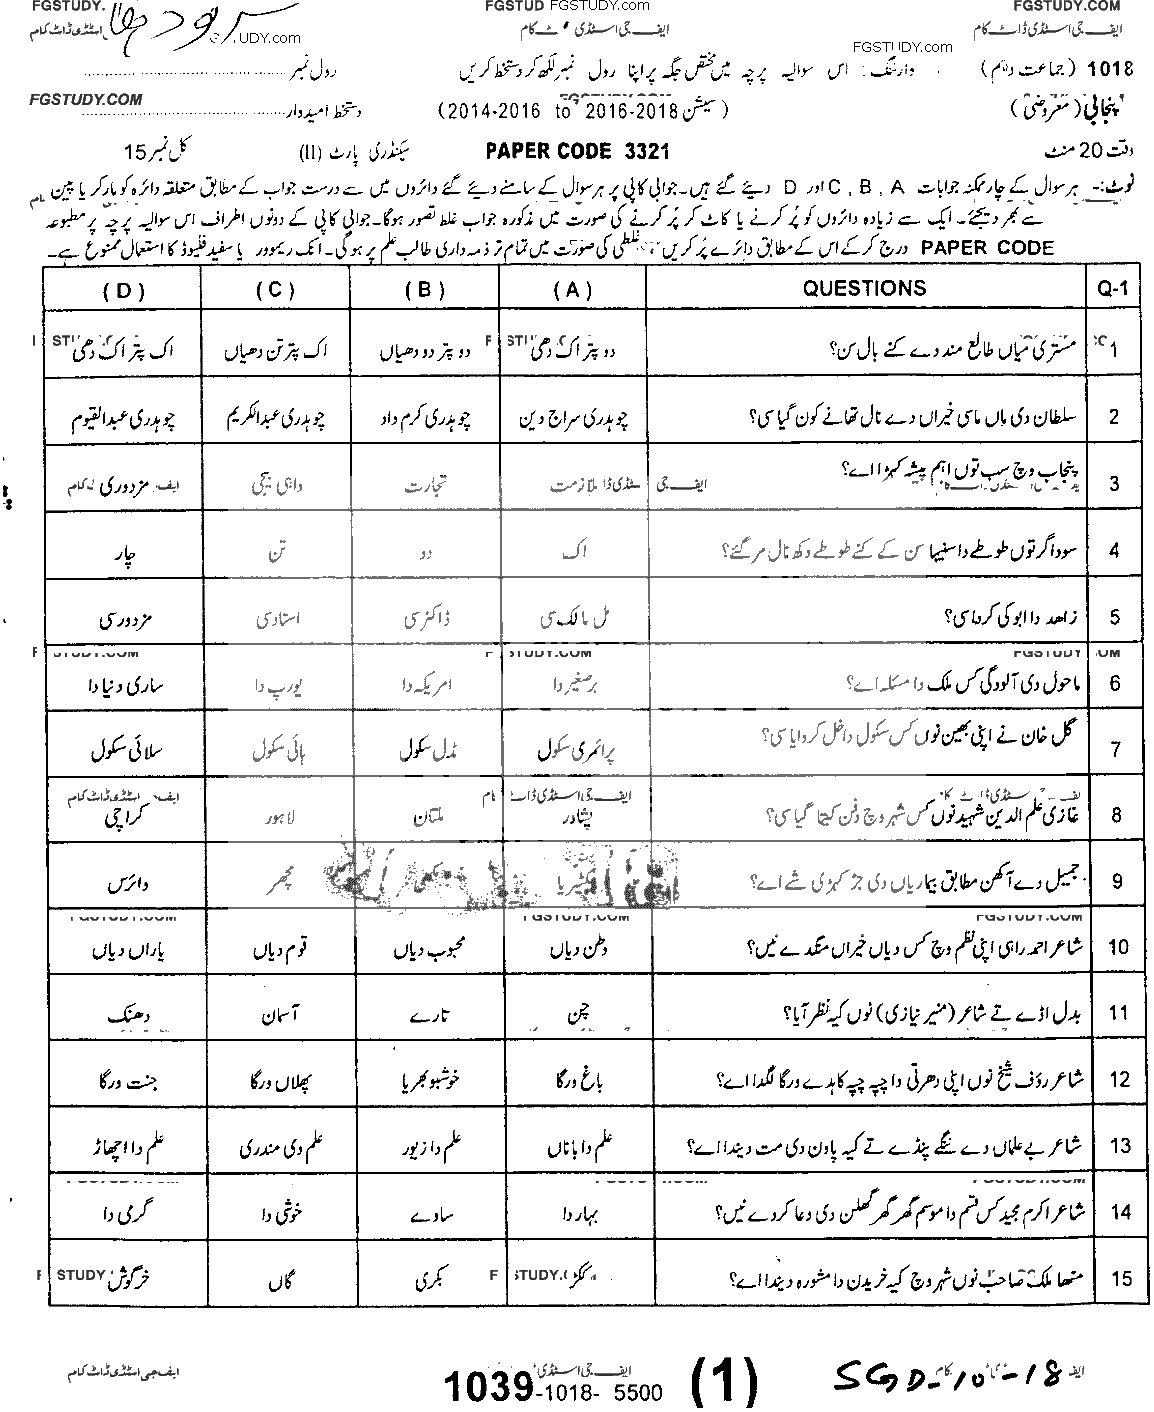 FGSTUDY. FGSTUD FGSTUDY.com FGSTUDY.COM
سرگودھا
اسٹڈی ڈاٹ کام UDY.com ایف جی اسٹڈی ٹ کام ایف جی اسٹڈی ڈاٹ کام
FGSTUDY.com
1018 (جماعت دہم) وارننگ: اس سوالیہ پرچہ میں مختص جگہ پر اپنا رول نمبر لکھ کر دستخط کریں رول نمبر
پنجابی (معروضی) (سیشن 2016-2018 to 2014-2016) دستخط امیدوار FGSTUDY.COM
وقت 20 منٹ PAPER CODE 3321 سیکنڈری پارٹ (II) کل نمبر 15
نوٹ:- ہر سوال کے چار ممکنہ جوابات C , B , A اور D دیئے گئے ہیں۔ جوابی کاپی پر ہر سوال کے سامنے دیئے گئے دائروں میں سے درست جواب کے مطابق متعلقہ دائرہ کو مارکر یا پین
سے بھر دیجئے۔ ایک سے زیادہ دائروں کو پُر کرنے یا کاٹ کر پُر کرنے کی صورت میں مذکورہ جواب غلط تصور ہوگا۔ جوابی کاپی کے دونوں اطراف اس سوالیہ پرچہ پر مطبوعہ
PAPER CODE درج کر کے اس کے مطابق دائرے پُر کریں غلطی کی صورت میں تمام تر ذمہ داری طالب علم پر ہو گی۔ انک ریموور یا سفید فلیوڈ کا استعمال ممنوع ہے۔
Q-1 QUESTIONS (A) (B) (C) (D)
1 مستری میاں طالع مند دے کنے بال سن؟ دو پتر اک دھی دو پتر دو دھیاں اک پتر تن دھیاں اک پتر اک دھی
2 سلطان دی ماں ماسی خیراں دے نال تھانے کون گیا سی؟ چوہدری سراج دین چوہدری کرم داد چوہدری عبدالکریم چوہدری عبدالقیوم
3 پنجاب وچ سب توں اہم پیشہ کہڑا اے؟ ملازمت تجارت واہی بیجی مزدوری
4 سوداگر توں طوطے دا سنیہا سن کے کنے طوطے دکھ نال مر گئے؟ اک دو تن چار
5 زاھد دا ابو کی کردا سی؟ مل مالک سی ڈاکٹر سی استاد سی مزدور سی
FGSTUDY OM STUDY.COM STUDY.COM
6 ماحول دی آلودگی کس ملک دا مسئلہ اے؟ برصغیر دا امریکہ دا یورپ دا ساری دنیا دا
7 گل خان نے اپنی بھین نوں کس سکول داخل کروایا سی؟ پرائمری سکول مڈل سکول ہائی سکول سلائی سکول
8 غازی علم الدین شہید نوں کس شہر وچ دفن کیتا گیا سی؟ پشاور ملتان لاہور کراچی
9 جمیل دے آکھن مطابق بیماریاں دی جڑ کہڑی شے اے؟ بیکٹیریا مکھی مچھر وائرس
FGSTUDY.COM FGSTUDY.COM FGSTUDY.COM
10 شاعر احمد راہی اپنی نظم وچ کس دیاں خیراں منگدے نیں؟ وطن دیاں محبوب دیاں قوم دیاں یاراں دیاں
11 بدل اڈے تے شاعر (منیر نیازی) نوں کیہ نظر آیا؟ چن تارے آسمان دھنک
12 شاعر رؤف شیخ نوں اپنی دھرتی دا چپہ چپہ کاہدے ورگا لگدا اے؟ باغ ورگا خوشبو بھریا پھلاں ورگا جنت ورگا
13 شاعر بے علماں دے ننگے پنڈے تے کیہ پاون دی مت دیندا اے؟ علم دا باناں علم دا زیور علم دی مندری علم دا اچھاڑ
14 شاعر اکرم مجید کس قسم دا موسم گھر گھر گھلن دی دعا کردے نیں؟ بہار دا ساوے خوشی دا گرمی دا
15 متھا ملک صاحب نوں شہر وچ کیہ خریدن دا مشورہ دیندا اے؟ ککڑ بکری گاں خرگوش
ایف جی اسٹڈی ڈاٹ کام ایف جی اسٹڈی
1039-1018- 5500 (1) SGD-10-18